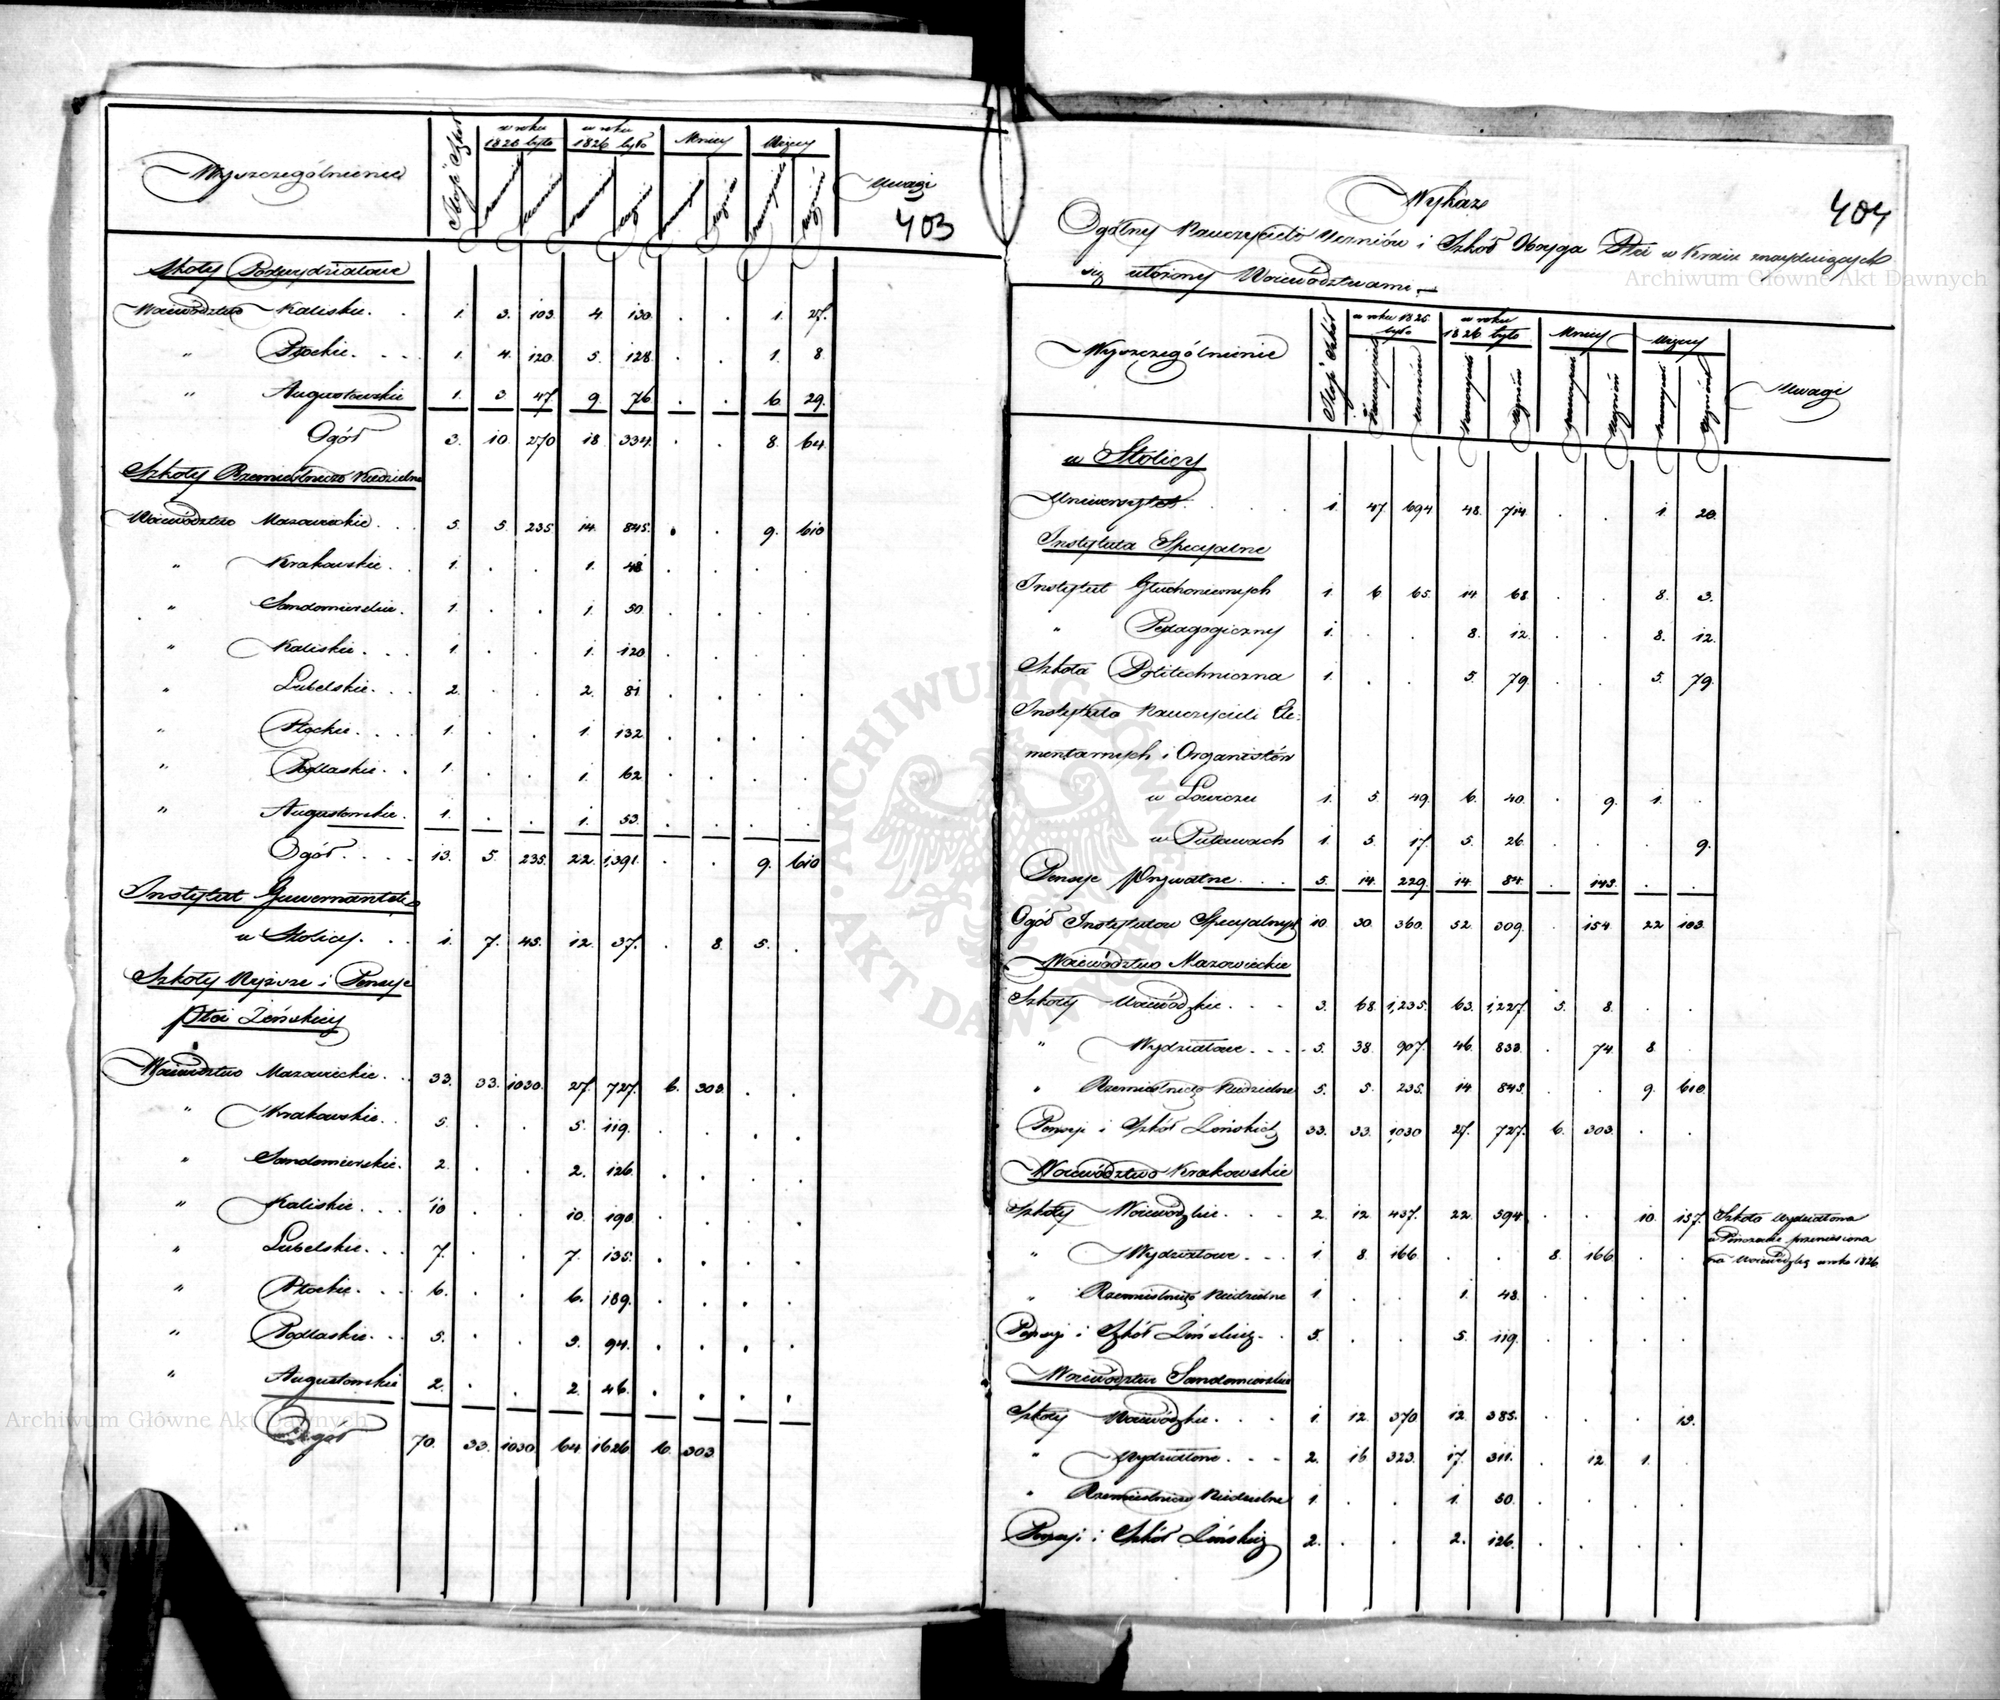 Wyszczególnienie Ilość Szkół w roku 1825 było w roku 1826 było Mniey Więcey Uwagi
403
Szkoły Podwydziałowe
Województwo Kaliskie . . 1. 3. 103. 4. 130. . . 1. 27.
" Płockie . . . 1. 4. 120 5. 128 . . 1. 8.
" Augustowskie 1. 3. 47. 9. 76 . . 6. 29.
Ogół 3. 10. 270 18 334. . . 8. 64
Szkoły Rzemieślniczo Niedzielne
Województwo Mazowieckie . . . 5. 5. 235 14. 845. . . 9. 610
" Krakowskie . . 1. . . 1. 48 . . . .
" Sandomierskie . 1. . . 1. 50 . . . .
" Kaliskie . . . 1. . . 1. 120 . . . .
" Lubelskie . . . 2. . . 2. 81 . . . .
" Płockie . . . . 1. . . 1. 132 . . . .
" Podlaskie . . 1. . . 1. 62 . . . .
" Augustowskie . 1. . . 1. 53. . . . .
Ogół . . . . 13. 5. 235. 22. 1,391. . . 9. 610
Instytut Guwernantek
w Stolicy . . . 1. 7. 45. 12. 37. . 8. 5. .
Szkoły Wyższe i Pensye
płci Żeńskiey
Województwo Mazowieckie . . 33. 33. 1030. 27. 727. 6. 303. . .
" Krakowskie . . 5. . . 5. 119. . . . .
" Sandomierskie . 2. . . 2. 126. . . . .
" Kaliskie . . . 10 . . 10. 190. . . . .
" Lubelskie . . . 7. . . 7. 135. . . . .
" Płockie . . . . 6. . . 6. 189. . . . .
" Podlaskie . . . 5. . . 5. 94. . . . .
" Augustowskie 2. . . 2. 46. . . . .
Ogół 70. 33. 1030. 64 1626 6. 303.
404
Wykaz
Ogólny Nauczycieli Uczniów i Szkół Obojga Płci w Kraiu znayduiących
się ułożony Województwami
Wyszczególnienie Ilość Szkół w roku 1825 było w roku 1826 było Mniey Więcey Uwagi
Nauczycieli Uczniów Nauczycieli Uczniów Nauczycieli Uczniów Nauczycieli Uczniów
w Stolicy
Uniwersytet . . . . 1. 47 694 48. 714. . . 1. 20.
Instytuta Specyalne
Instytut Głuchoniemych 1. 6. 65. 14 68. . . 8. 3.
" Pedagogiczny 1. . . 8. 12. . . 8. 12.
Szkoła Politechniczna 1. . . 5. 79. . . 5. 79.
Instytuta Nauczycieli Ele-
mentarnych i Organistów
w Łowiczu 1. 5. 49. 6. 40. . 9. 1. .
w Puławach 1. 5. 17. 5. 26. . . . 9.
Pensye Prywatne . . . 5. 14. 229. 14. 84. . 145. . .
Ogół Instytutow Specyalnych 10 30. 360. 52. 309. . 154. 22 103.
Województwo Mazowieckie
Szkoły Woiewódzkie . . . 3. 68. 1,235. 63. 1,227. 5. 8. . .
" Wydziałowe . . . . 5. 38. 907. 46. 833. . 74. 8. .
" Rzemieślniczo Niedzielne 5. 5. 235. 14 845. . . 9. 610.
Pensyi i Szkół Żeńskich 33. 33. 1030 27. 727. 6. 303. . .
Województwo Krakowskie
Szkoły Woiewódzkie . . . 2. 12. 437. 22. 594. . . 10. 157. Szkoła Wydziałowa
w Pinczowie przeniesiona
na Woiewódzką w roku 1826
" Wydziałowe . . . 1. 8. 166. . . 8. 166. . .
" Rzemieślniczo Niedzielne 1. . . 1. 48. . . . .
Pensyi i Szkół Żeńskich . . 5. . . 5. 119. . . . .
Województwo Sandomierskie
Szkoły Woiewódzkie . . . 1. 12. 370. 12. 385. . . . 15.
" Wydziałowe . . . 2. 16 323. 17. 311. . 12. 1. .
" Rzemieślniczo Niedzielne 1. . . 1. 50. . . . .
Pensyi i Szkół Żeńskich 2. . . 2. 126. . . . .
Archiwum Główne Akt Dawnych
Archiwum Główne Akt Dawnych
ARCHIWUM GŁÓWNE AKT DAWNYCH